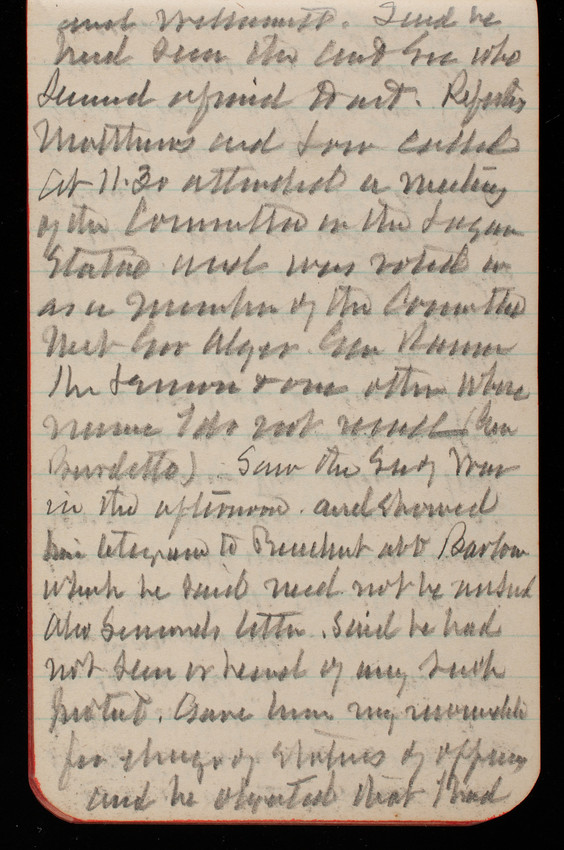 and Willamette. Said he
had seen the and Gen who
seemed afraid to act. Reporters
Matthews and Low called
At 11.30 attended a meeting
of the Committee on the Logan
Statue and was voted in
as a member of the Committee
Met Gov Alger Gen
the & one other whose
name I do not recall (Gen
Burdette). Saw the Secy War
in the afternoon. and showed
him telegram to President abt Barlow
which he said need not be
Also letter. Said he had
not seen or heard of any such
protest. Gave him my
for change of status of officers
and he that I had